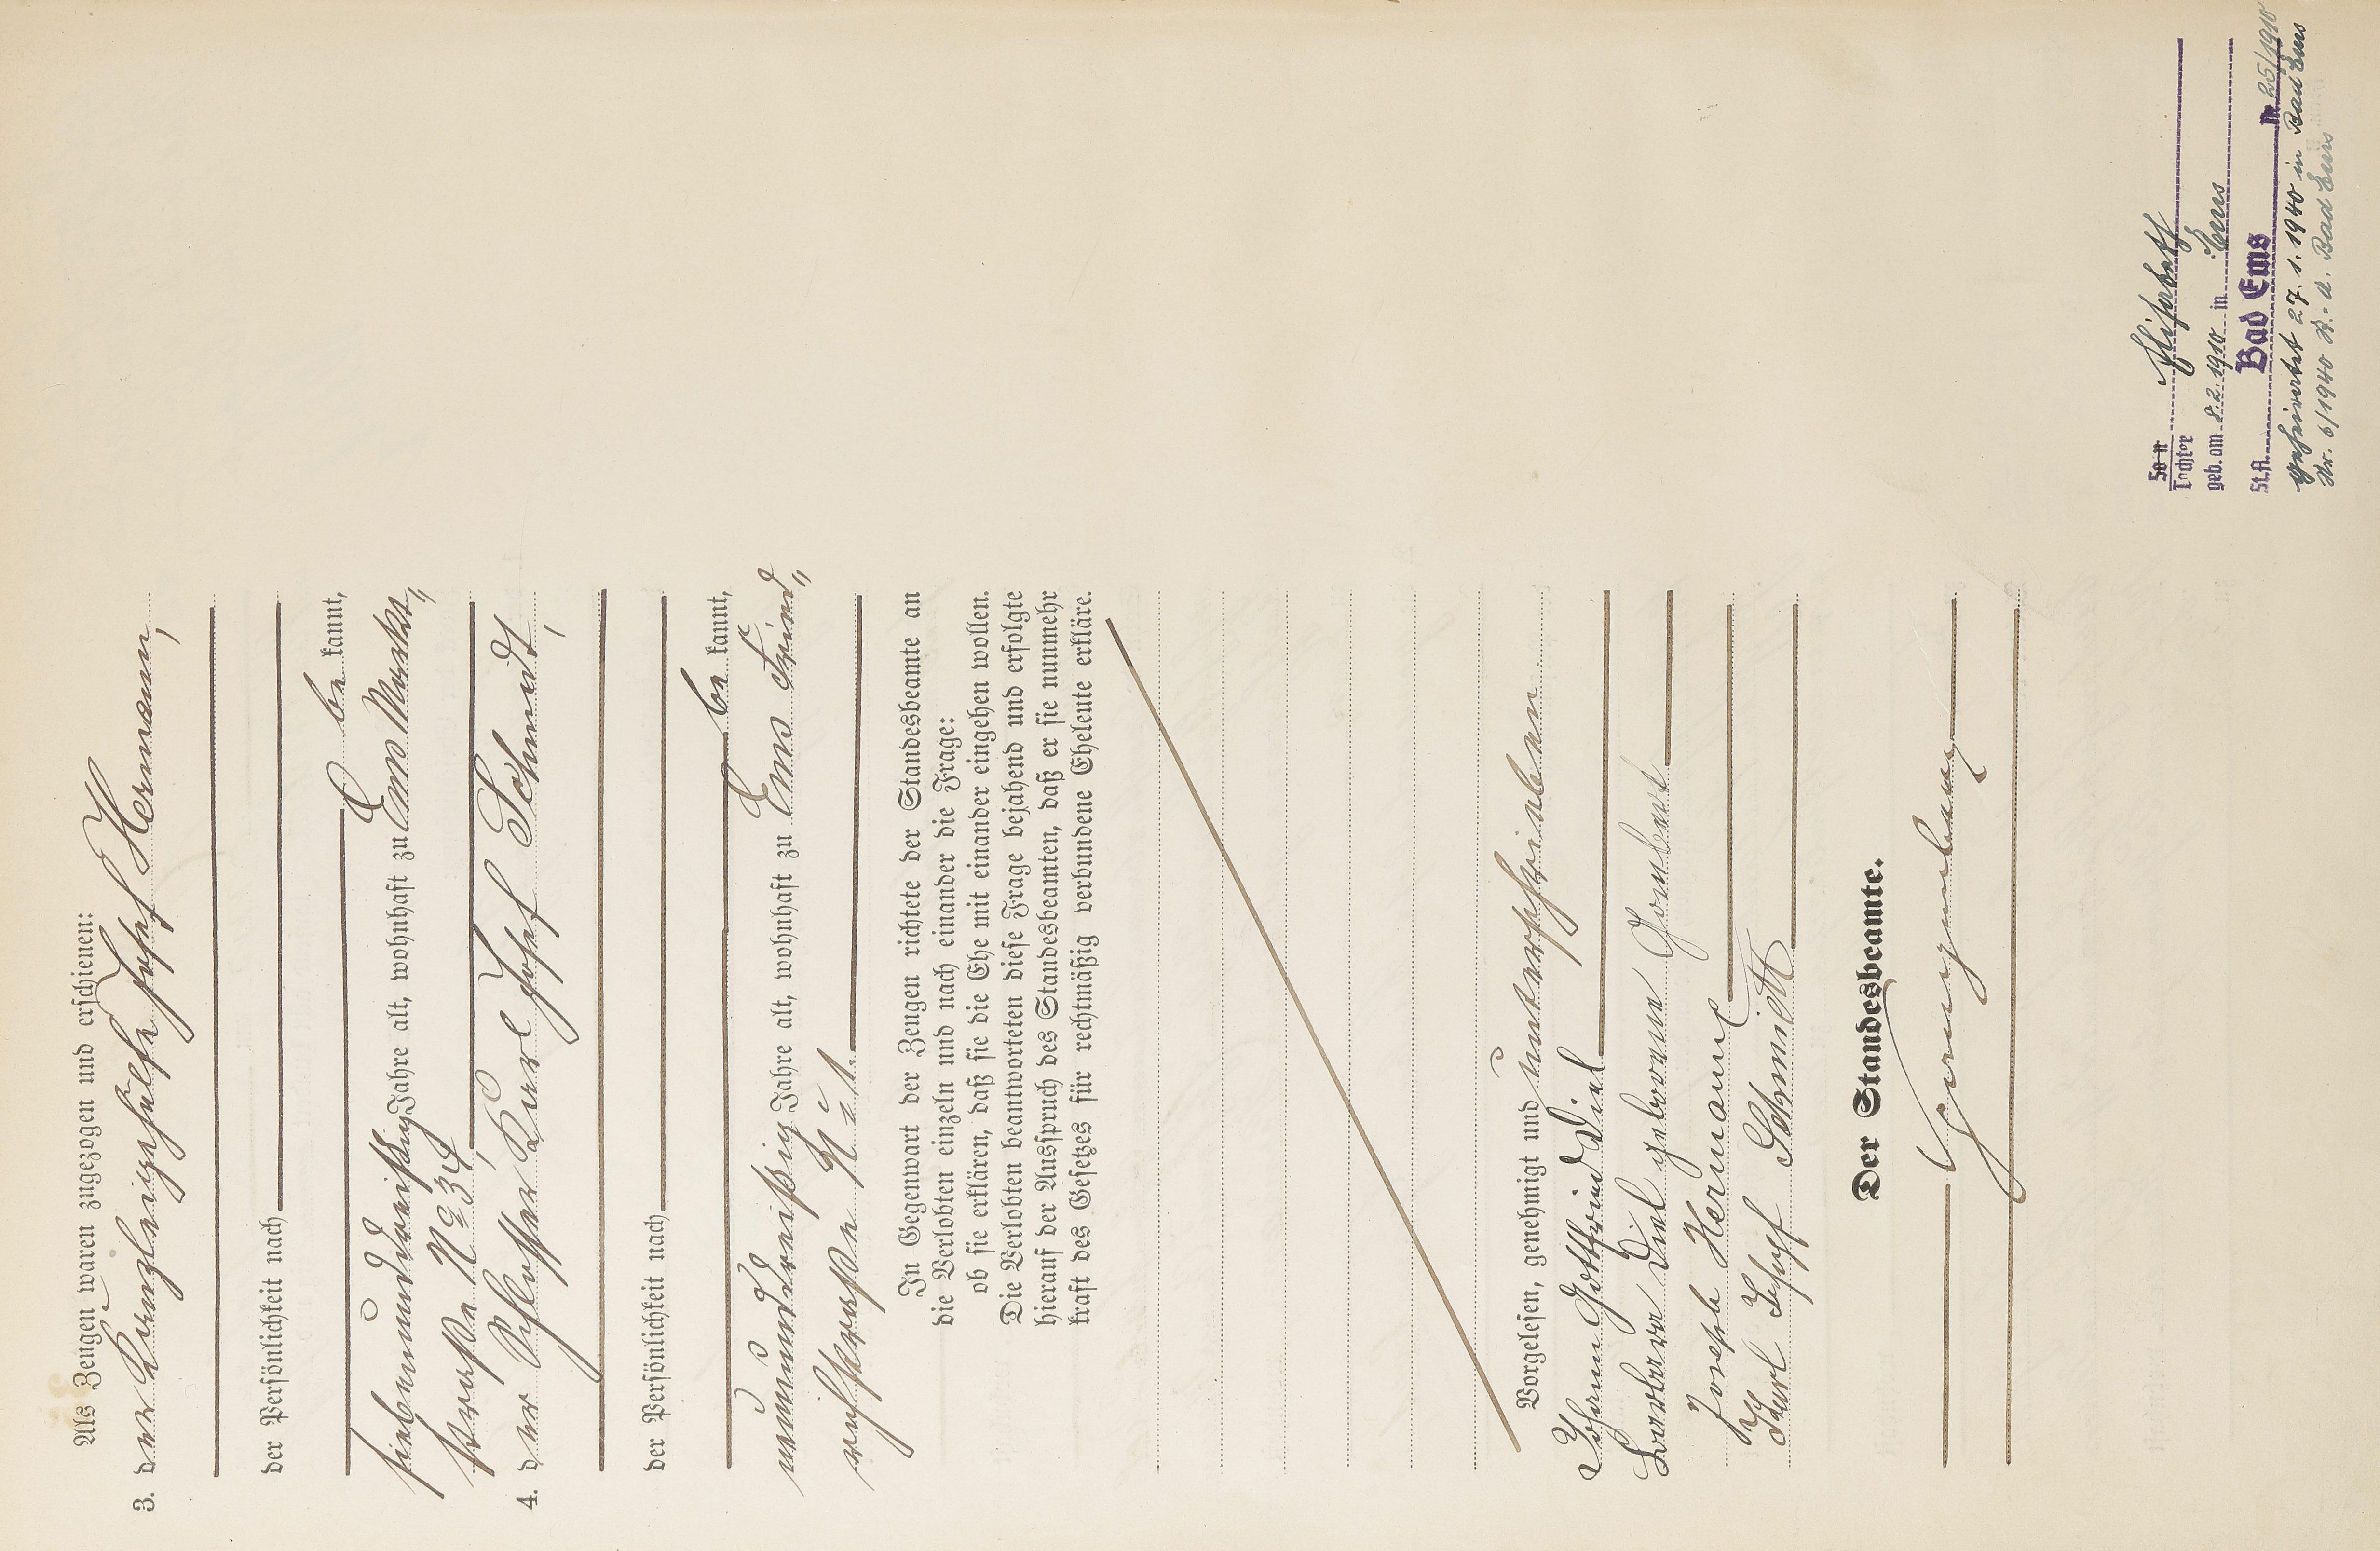 Als Zeugen waren zugezogen und erschienen:
3. der Kanzleigehülfe Josef Hermann,
der Persönlichkeit nach
be kannt,
siebenunddreißig Jahre alt, wohnhaft zu Ems Markt„
straße No 34,
4. der Schlosser Karl Josef Schmidt,
der Persönlichkeit nach
be kannt,
neununddreißig Jahre alt, wohnhaft zu Ems
No 1.
In Gegenwart der Zeugen richtete der Standesbeamte an
die Verlobten einzeln und nach einander die Frage:
ob sie erklären, daß sie die Ehe mit einander eingehen wollen.
Die Verlobten beantworteten diese Frage bejahend und erfolgte
hierauf der Ausspruch des Standesbeamten, daß er sie nunmehr
kraft des Gesetzes für rechtmäßig verbundene Eheleute erkläre.
Vorgelesen, genehmigt und unterschrieben
Johann Gottfried Diel
Barbara Diel geborene Gombert
Joseph Hermann
Karl Josef Schmidt
Der Standesbeamte.
Sohn
Tochter Elisabeth
geb. am 8.2.1910 in Ems
St.A. Bad Ems Nr. 25/1910
geheiratet 27.1.1940 in Bad Ems
Nr. 6/1940 St.A. Bad Ems